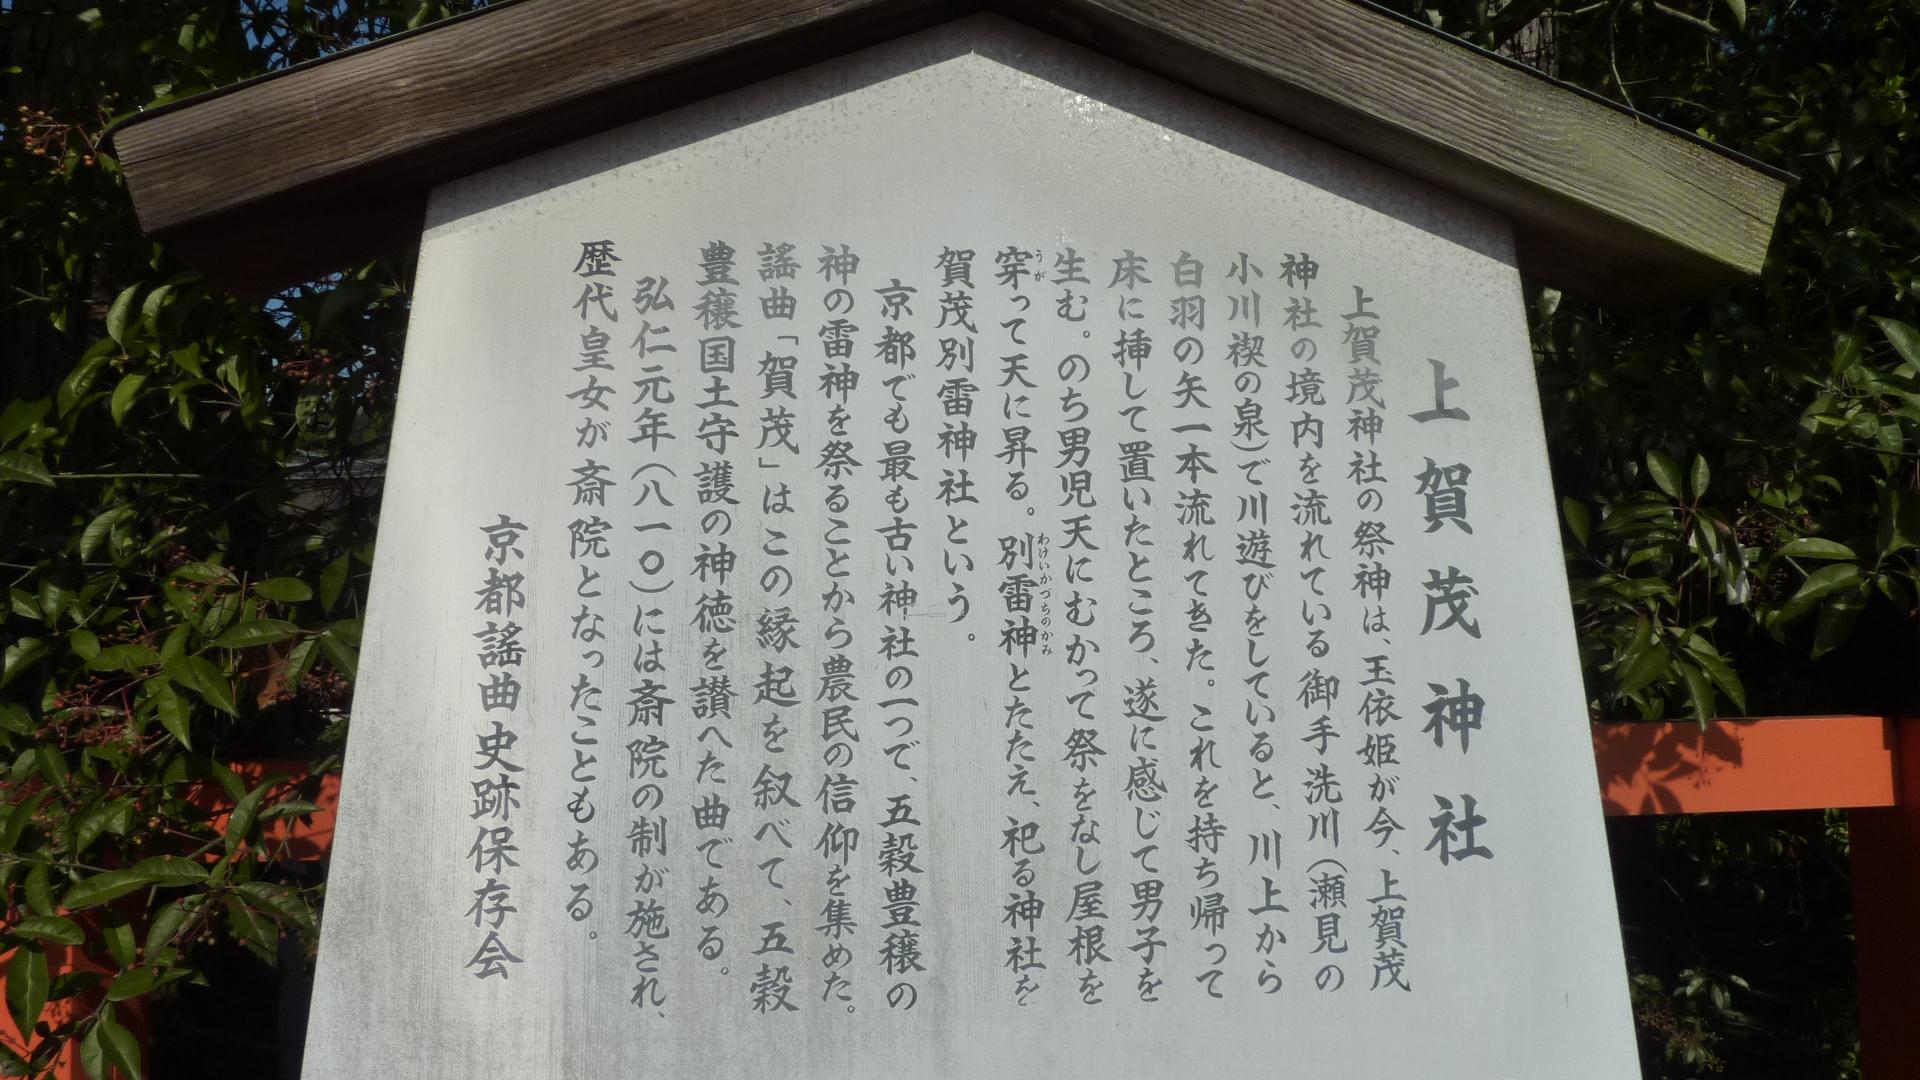 上賀茂神社
上賀茂神社の祭神は、玉依姫が今、上賀茂
神社の境内を流れている御手洗川（瀬見の
小川禊の泉）で川遊びをしていると、川上から
白羽の矢一本流れてきた。これを持ち帰って
床に挿して置いたところ、遂に感じて男子を
生む。のち男児天にむかって祭をなし屋根を
穿って天に昇る。別雷神とたたえ、祀る神社を
うが
わけいかづちのかみ
賀茂別雷神社という。
京都でも最も古い神社の一つで、五穀豊穣の
神の雷神を祭ることから農民の信仰を集めた。
謡曲「賀茂」はこの縁起を叙べて、五穀
豊穣国土守護の神徳を讃へた曲である。
弘仁元年（八一〇）には斎院の制が施され、
歴代皇女が斎院となったこともある。
京都謡曲史跡保存会